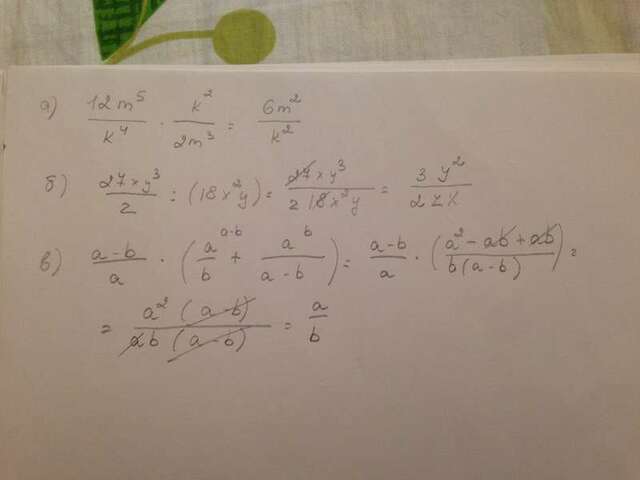 а) 12m⁵/k⁴ · k²/2m³ = 6m²/k²
б) 27xy³/z : (18x²y) = 27xy³/z18x²y = 3y²/2zx
в) a-b/a · (a/b + a/a-b) = a-b/a · (a²-ab+ab/b(a-b)) =
= a²(a-b)/ab(a-b) = a/b